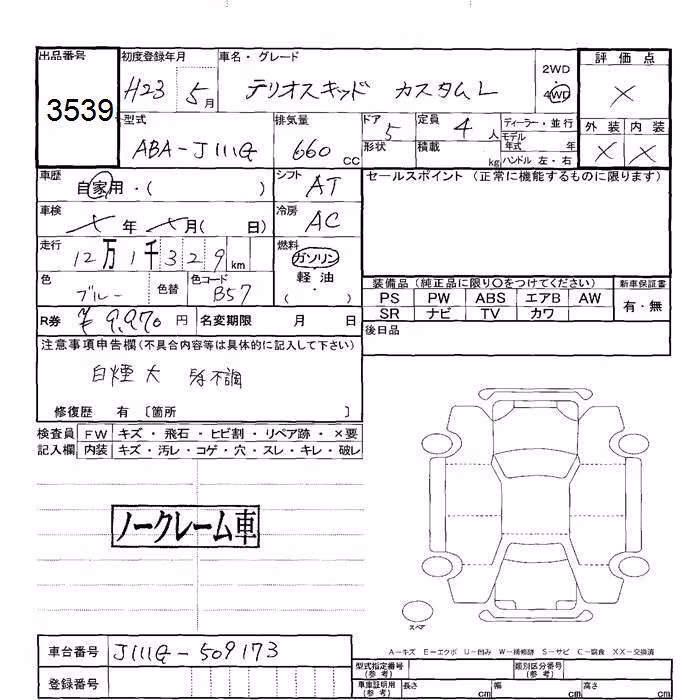 出品番号 初度登録年月 車名・グレード 評価点
3539 H23 5月 テリオスキッド カスタムL 2WD 4WD ×
型式 排気量 ドア 定員 ディーラー・並行 外装 内装
ABA-J111G 660cc 5 4人 モデル年式 年 × ×
形状 積載 kg ハンドル 左・右
車歴 自家用・( ) シフト AT セールスポイント (正常に機能するものに限ります)
車検 × 年 × 月( 日) 冷房 AC
走行 12万1千329km 燃料 ガソリン
軽油
( )
色 ブルー 色替 色コード B57
装備品 (純正品に限り○をつけてください) 新車保証書
PS PW ABS エアB AW 有・無
SR ナビ TV カワ
R券 ¥9,970円 名変期限 月 日
後日品
注意事項申告欄(不具合内容等は具体的に記入して下さい)
白煙大 不調
修復歴 有 〔箇所 〕
検査員 FW キズ・飛石・ヒビ割・リペア跡・×要
記入欄 内装 キズ・汚レ・コゲ・穴・スレ・キレ・破レ
ノークレーム車
スペア
A-キズ E-エクボ U-凹み W-補修跡 S-サビ C-腐食 XX-交換済
車台番号 J111G-509173
登録番号
型式指定番号(参考) 類別区分番号(参考)
車庫証明用(参考) 長さ cm 幅 cm 高さ cm